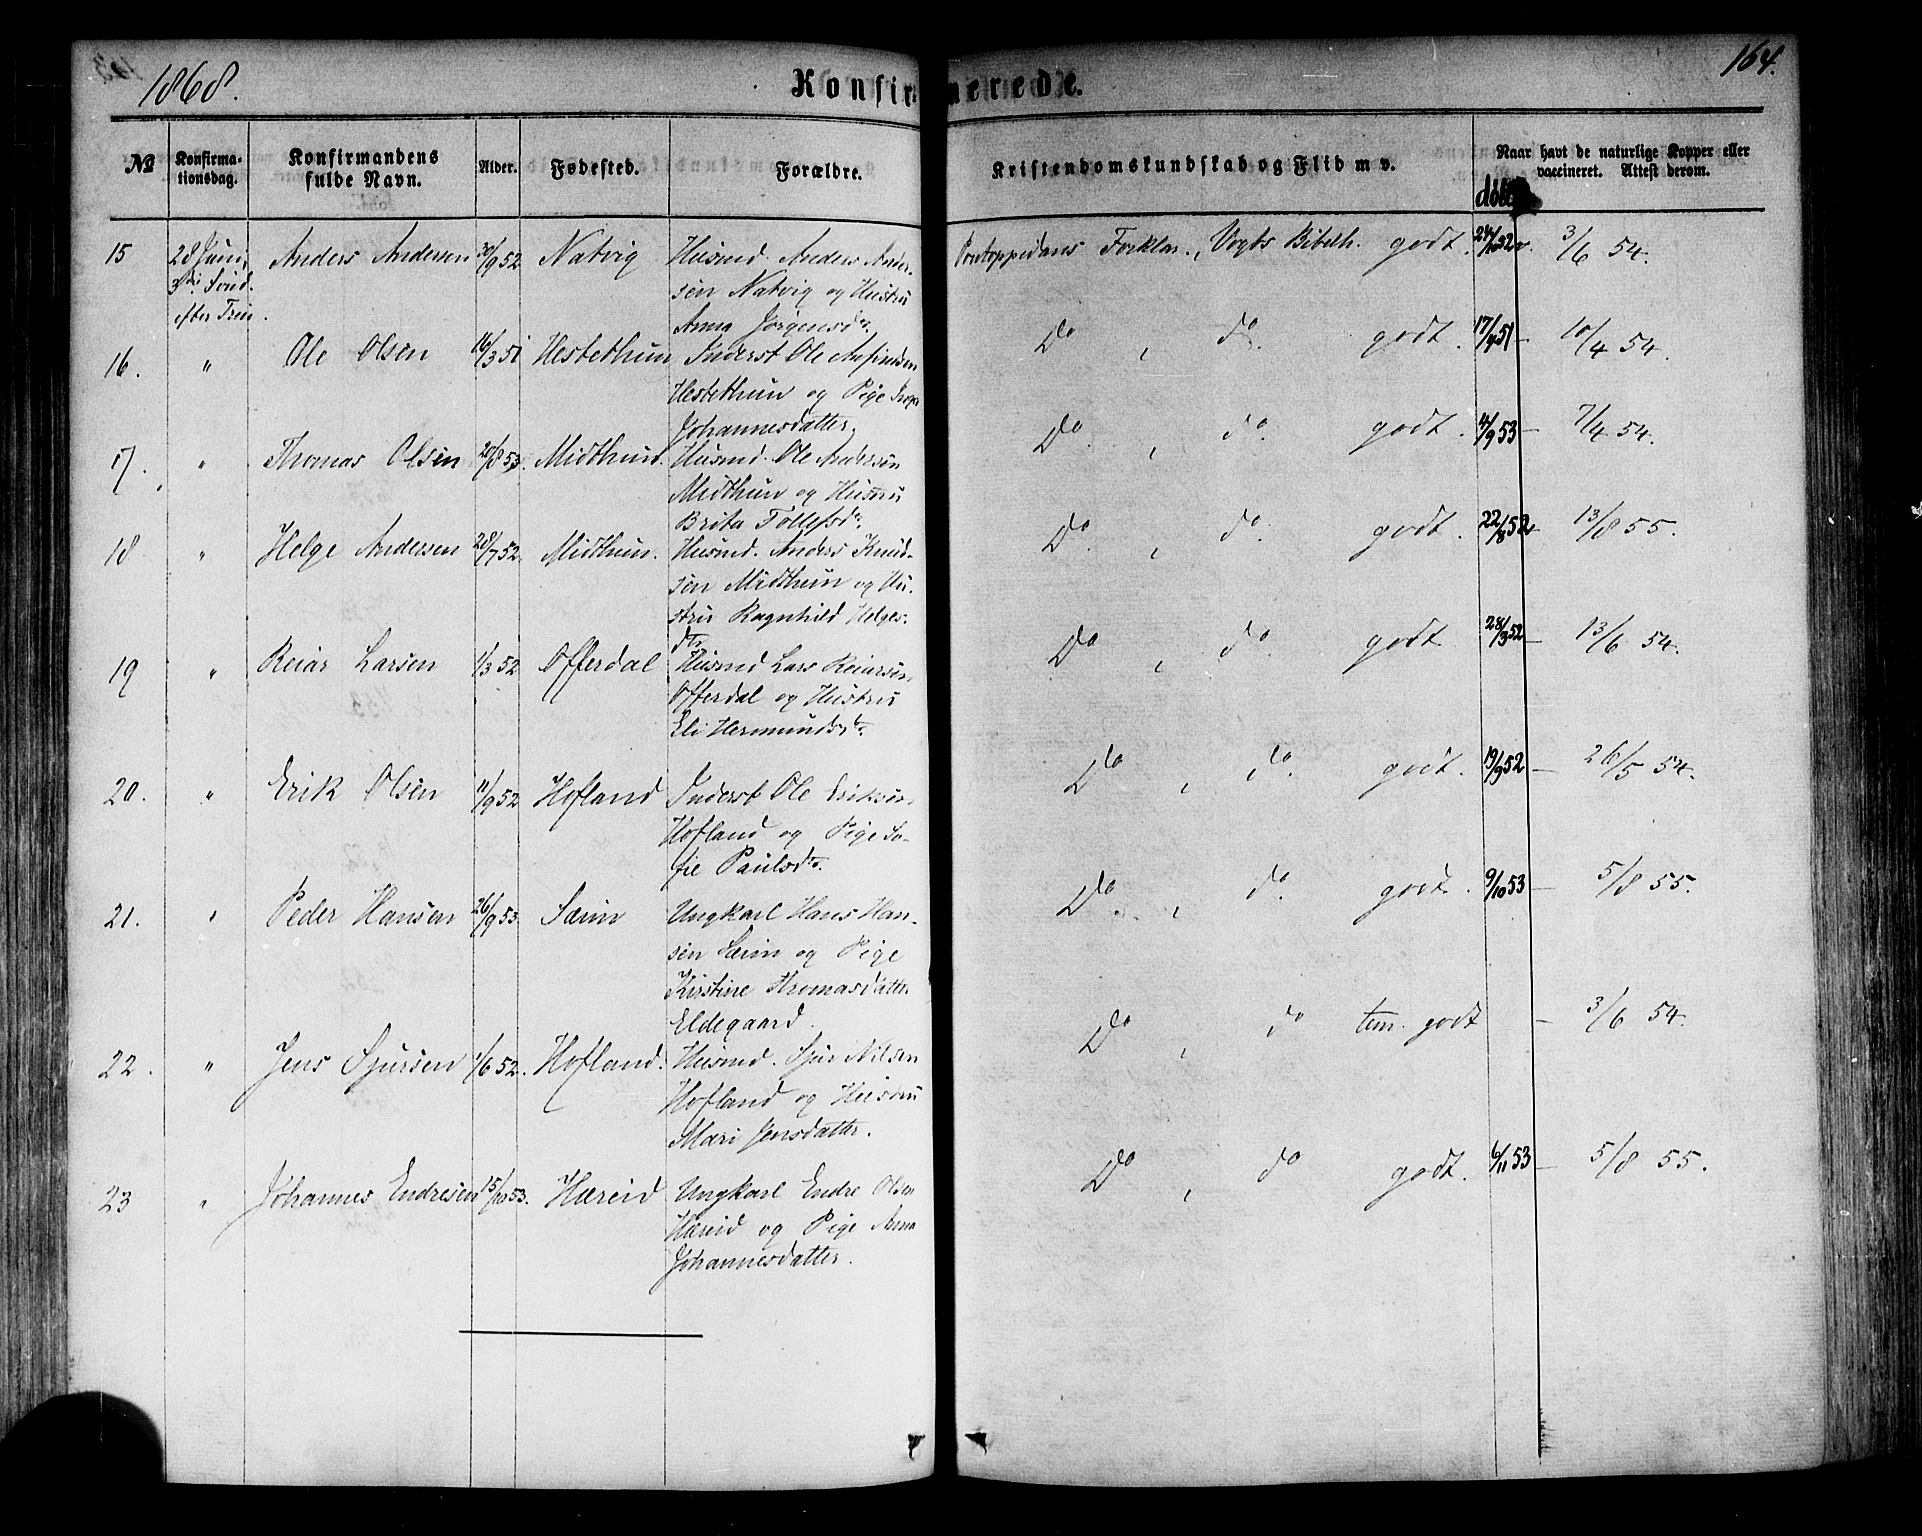 1868.
Konfirmerede.
164.
№
Konfirma-
tionsdag.
Konfirmandens
fulde Navn.
Alder.
Fødested.
Forældre.
Kristendomskundskab og Flid m v.
Naar havt de naturlige Kopper eller
vaccineret. Attest derom.
døbt
15 28 Juni, Anders Andersen 30/9 52 Natvig Husmd. Anders Ander- Pontoppidans Forklar., Vogts Bibelh. godt. 3/6 54.
3die Sønd. sen Natvig og Hustru
efter Trin. Anna Jørgensdr.
16. " Ole Olsen 16/3 51 Hestethun Inderst Ole Anfindsen Do , do. godt. 17/4 51 – 10/4 54.
Hestethun og Pige
Johannesdatter.
17. " Thomas Olsen 20/8 53. Midthun. Husmd. Ole Andersen Do. , do. godt. /9 53 – 7/4 54.
Midthun og Hustru
Brita Tollefsdr.
18 " Helge Andersen 28/7 52. Midthun. Husmd. Anders Knud- Do. , do. godt. 22/8 52 13/8 55.
sen Midthun og Hu-
stru Ragnhild Helges-
dtr.
19 " Reiar Larsen 1/3 52 Offerdal Husmd Lars Reiarsen Do , do. godt 28/3 52 – 13/6 54.
Offerdal og Hustru
Eli Hermundsdr.
20. " Erik Olsen 11/9 52 Hofland Inderst Ole Eriksen Do , do. godt. 19/9 52 – 26/5 54.
Hofland og Pige So-
fie Paulsdr.
21. " Peder Hansen 26/9 53. Sæim Ungkarl Hans Han- Do , do. godt. 9/10 53 – 5/8 55.
sen Sæim og Pige
Kirstine Thomasdatter
Eldegaard.
22. " Jens Sjursen 1/6 52. Hofland. Husmd. Sjur Nilsen Do , do tem. godt – 3/6 54.
Hofland og Hustru
Mari Jensdatter.
23 " Johannes Endresen 15/10 53. Hæreid Ungkarl Endre Olsen Do , do godt. 6/11 53 – 5/8 55.
Hæreid og Pige Anna
Johannesdatter.